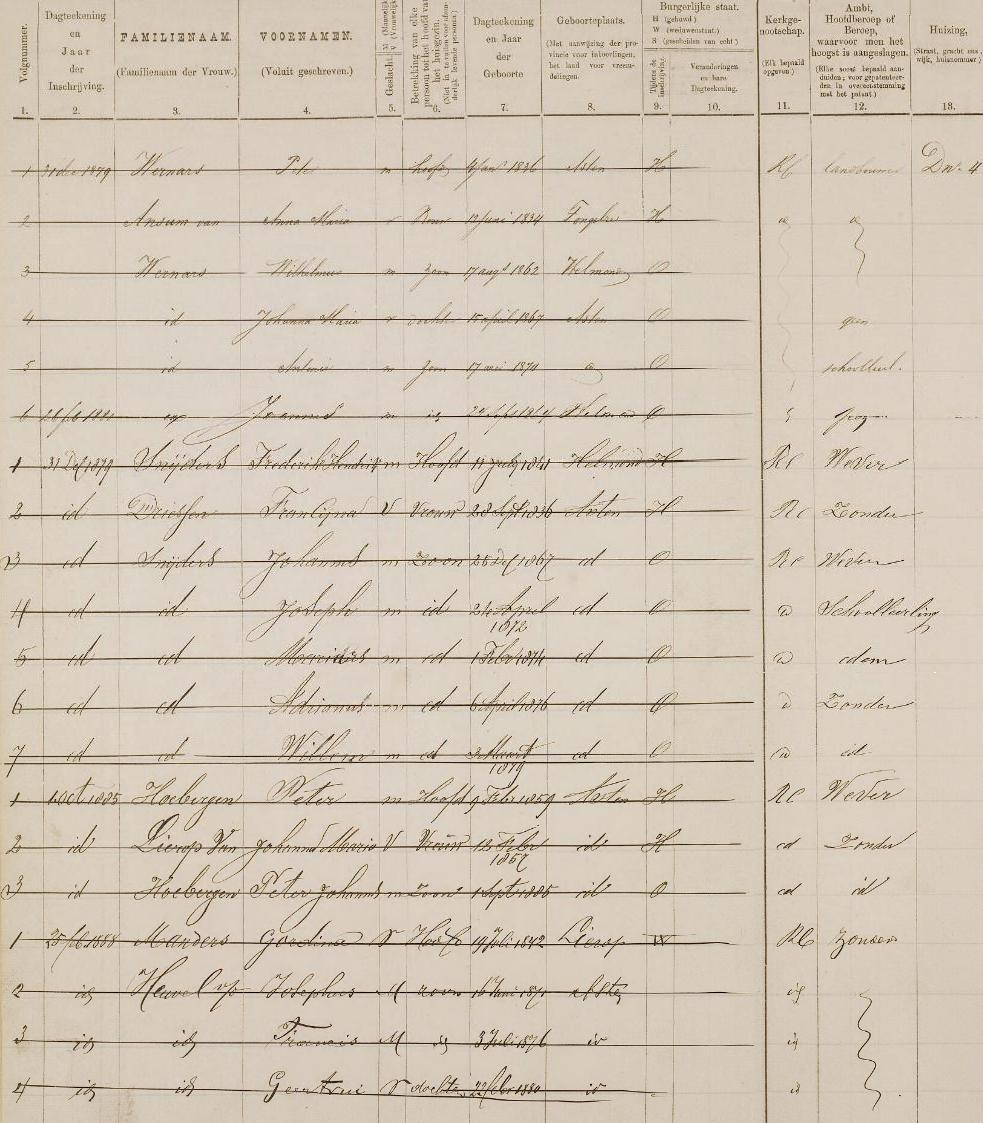 Volgnummer.
Dagteekening en Jaar der Inschrijving.
FAMILIENAAM.
(Familienaam der Vrouw.)
VOORNAMEN.
(Voluit geschreven.)
Geslacht.
M (Mannelijk)
V (Vrouwelijk)
Betrekking van elke persoon tot het hoofd van het huisgezin.
Dagteekening en Jaar der Geboorte
Geboorteplaats.
(Met aanwijzing der provincie voor inboorlingen, het land voor vreemdelingen.
Burgerlijke staat.
H (gehuwd)
W (weduwenstaat.)
S (gescheiden van echt)
Tijdens de inschrijving.
Veranderingen en hare Dagteekening.
Kerkgenootschap.
(Elk bepaald opgeven)
Ambt, Hoofdberoep of Beroep, waarvoor men het hoogst is aangeslagen.
Huizing,
1. 2. 3. 4. 5. 6. 7. 8. 9. 10. 11. 12. 13.
1 31 dec 1879 Wernars m hoofd 1836 Asten H RC landbouwer D no. 4
2 Ansum van Anna Maria v 1834 H
3 Wernars Wilhelmus m zoon 17 augt 1862 Helmond O
4 id Johanna Maria v 15 april 1867 Asten O geen
5 id m zoon 17 mei 1870 O
6 m O
1 31 Dec 1879 Snijders Frederik Hendrik m Hoofd 11 July 1841 Helmond H RC Wever
2 id Driessen Francijna V Vrouw 28 Sept 1836 Asten H RC Zonder
3 id Snijders Johannes m Zoon 25 Dec 1867 id O RC Wever
4 id id Joseph m id 24 April 1872 id O Schoolleerling
5 id id m id 1 Febr 1874 id O idem
6 id id Adrianus m id 6 April 1876 id O Zonder
7 id id Willem m id 3 Maart 1879 id O id
1 1 Oct 1885 Hoebergen Peter m Hoofd 9 Febr 1859 Asten H RC Wever
2 id Lierop Van Johanna Maria V Vrouw 12 Febr 1857 id H id Zonder
3 id Hoebergen Peter Johannes m Zoon 1 Sept 1885 id O id id
1 25 feb 1888 Manders Gordina V Hoofd 14 Juli 1842 Lierop W RC zonder
2 id Heuvel v/d Josephus M zoon 16 Juni 1871 id
3 id id Francis M id 3 Juli 1876 id id
4 id id Geertrui V dochter 22 febr 1880 id id